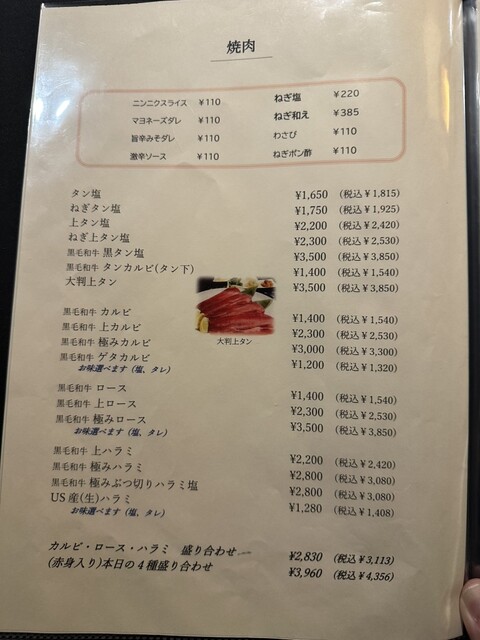 焼肉
ニンニクスライス ¥110 ねぎ塩 ¥220
マヨネーズダレ ¥110 ねぎ和え ¥385
旨辛みそダレ ¥110 わさび ¥110
激辛ソース ¥110 ねぎポン酢 ¥110
タン塩 ¥1,650 (税込¥1,815)
ねぎタン塩 ¥1,750 (税込¥1,925)
上タン塩 ¥2,200 (税込¥2,420)
ねぎ上タン塩 ¥2,300 (税込¥2,530)
黒毛和牛 黒タン塩 ¥3,500 (税込¥3,850)
黒毛和牛 タンカルビ(タン下) ¥1,400 (税込¥1,540)
大判上タン ¥3,500 (税込¥3,850)
大判上タン
黒毛和牛 カルビ ¥1,400 (税込¥1,540)
黒毛和牛 上カルビ ¥2,300 (税込¥2,530)
黒毛和牛 極みカルビ ¥3,000 (税込¥3,300)
黒毛和牛 ゲタカルビ ¥1,200 (税込¥1,320)
お味選べます（塩、タレ）
黒毛和牛 ロース ¥1,400 (税込¥1,540)
黒毛和牛 上ロース ¥2,300 (税込¥2,530)
黒毛和牛 極みロース ¥3,500 (税込¥3,850)
お味選べます（塩、タレ）
黒毛和牛 上ハラミ ¥2,200 (税込¥2,420)
黒毛和牛 極みハラミ ¥2,800 (税込¥3,080)
黒毛和牛 極みぶつ切りハラミ塩 ¥2,800 (税込¥3,080)
US産(生)ハラミ ¥1,280 (税込¥1,408)
お味選べます（塩、タレ）
カルビ・ロース・ハラミ 盛り合わせ ¥2,830 (税込¥3,113)
(赤身入り)本日の4種盛り合わせ ¥3,960 (税込¥4,356)